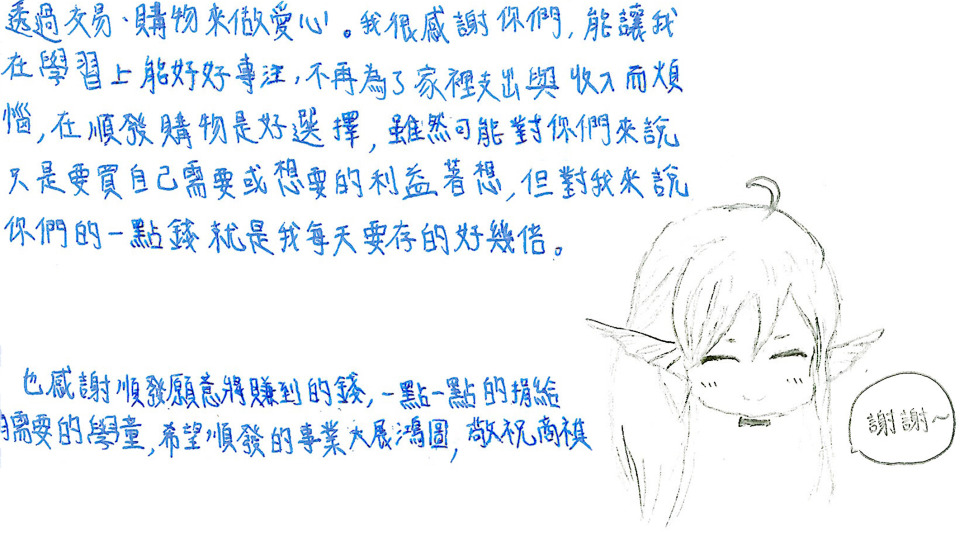 透過交易、購物來做愛心。我很感謝你們,能讓我
在學習上能好好專注,不再為了家裡支出與收入而煩
惱,在順發購物是好選擇,雖然可能對你們來說
只是要買自己需要或想要的利益著想,但對我來說
你們的一點錢就是我每天要存的好幾倍。
也感謝順發願意將賺到的錢,一點一點的捐給
需要的學童,希望順發的事業大展鴻圖,敬祝商祺
謝謝~